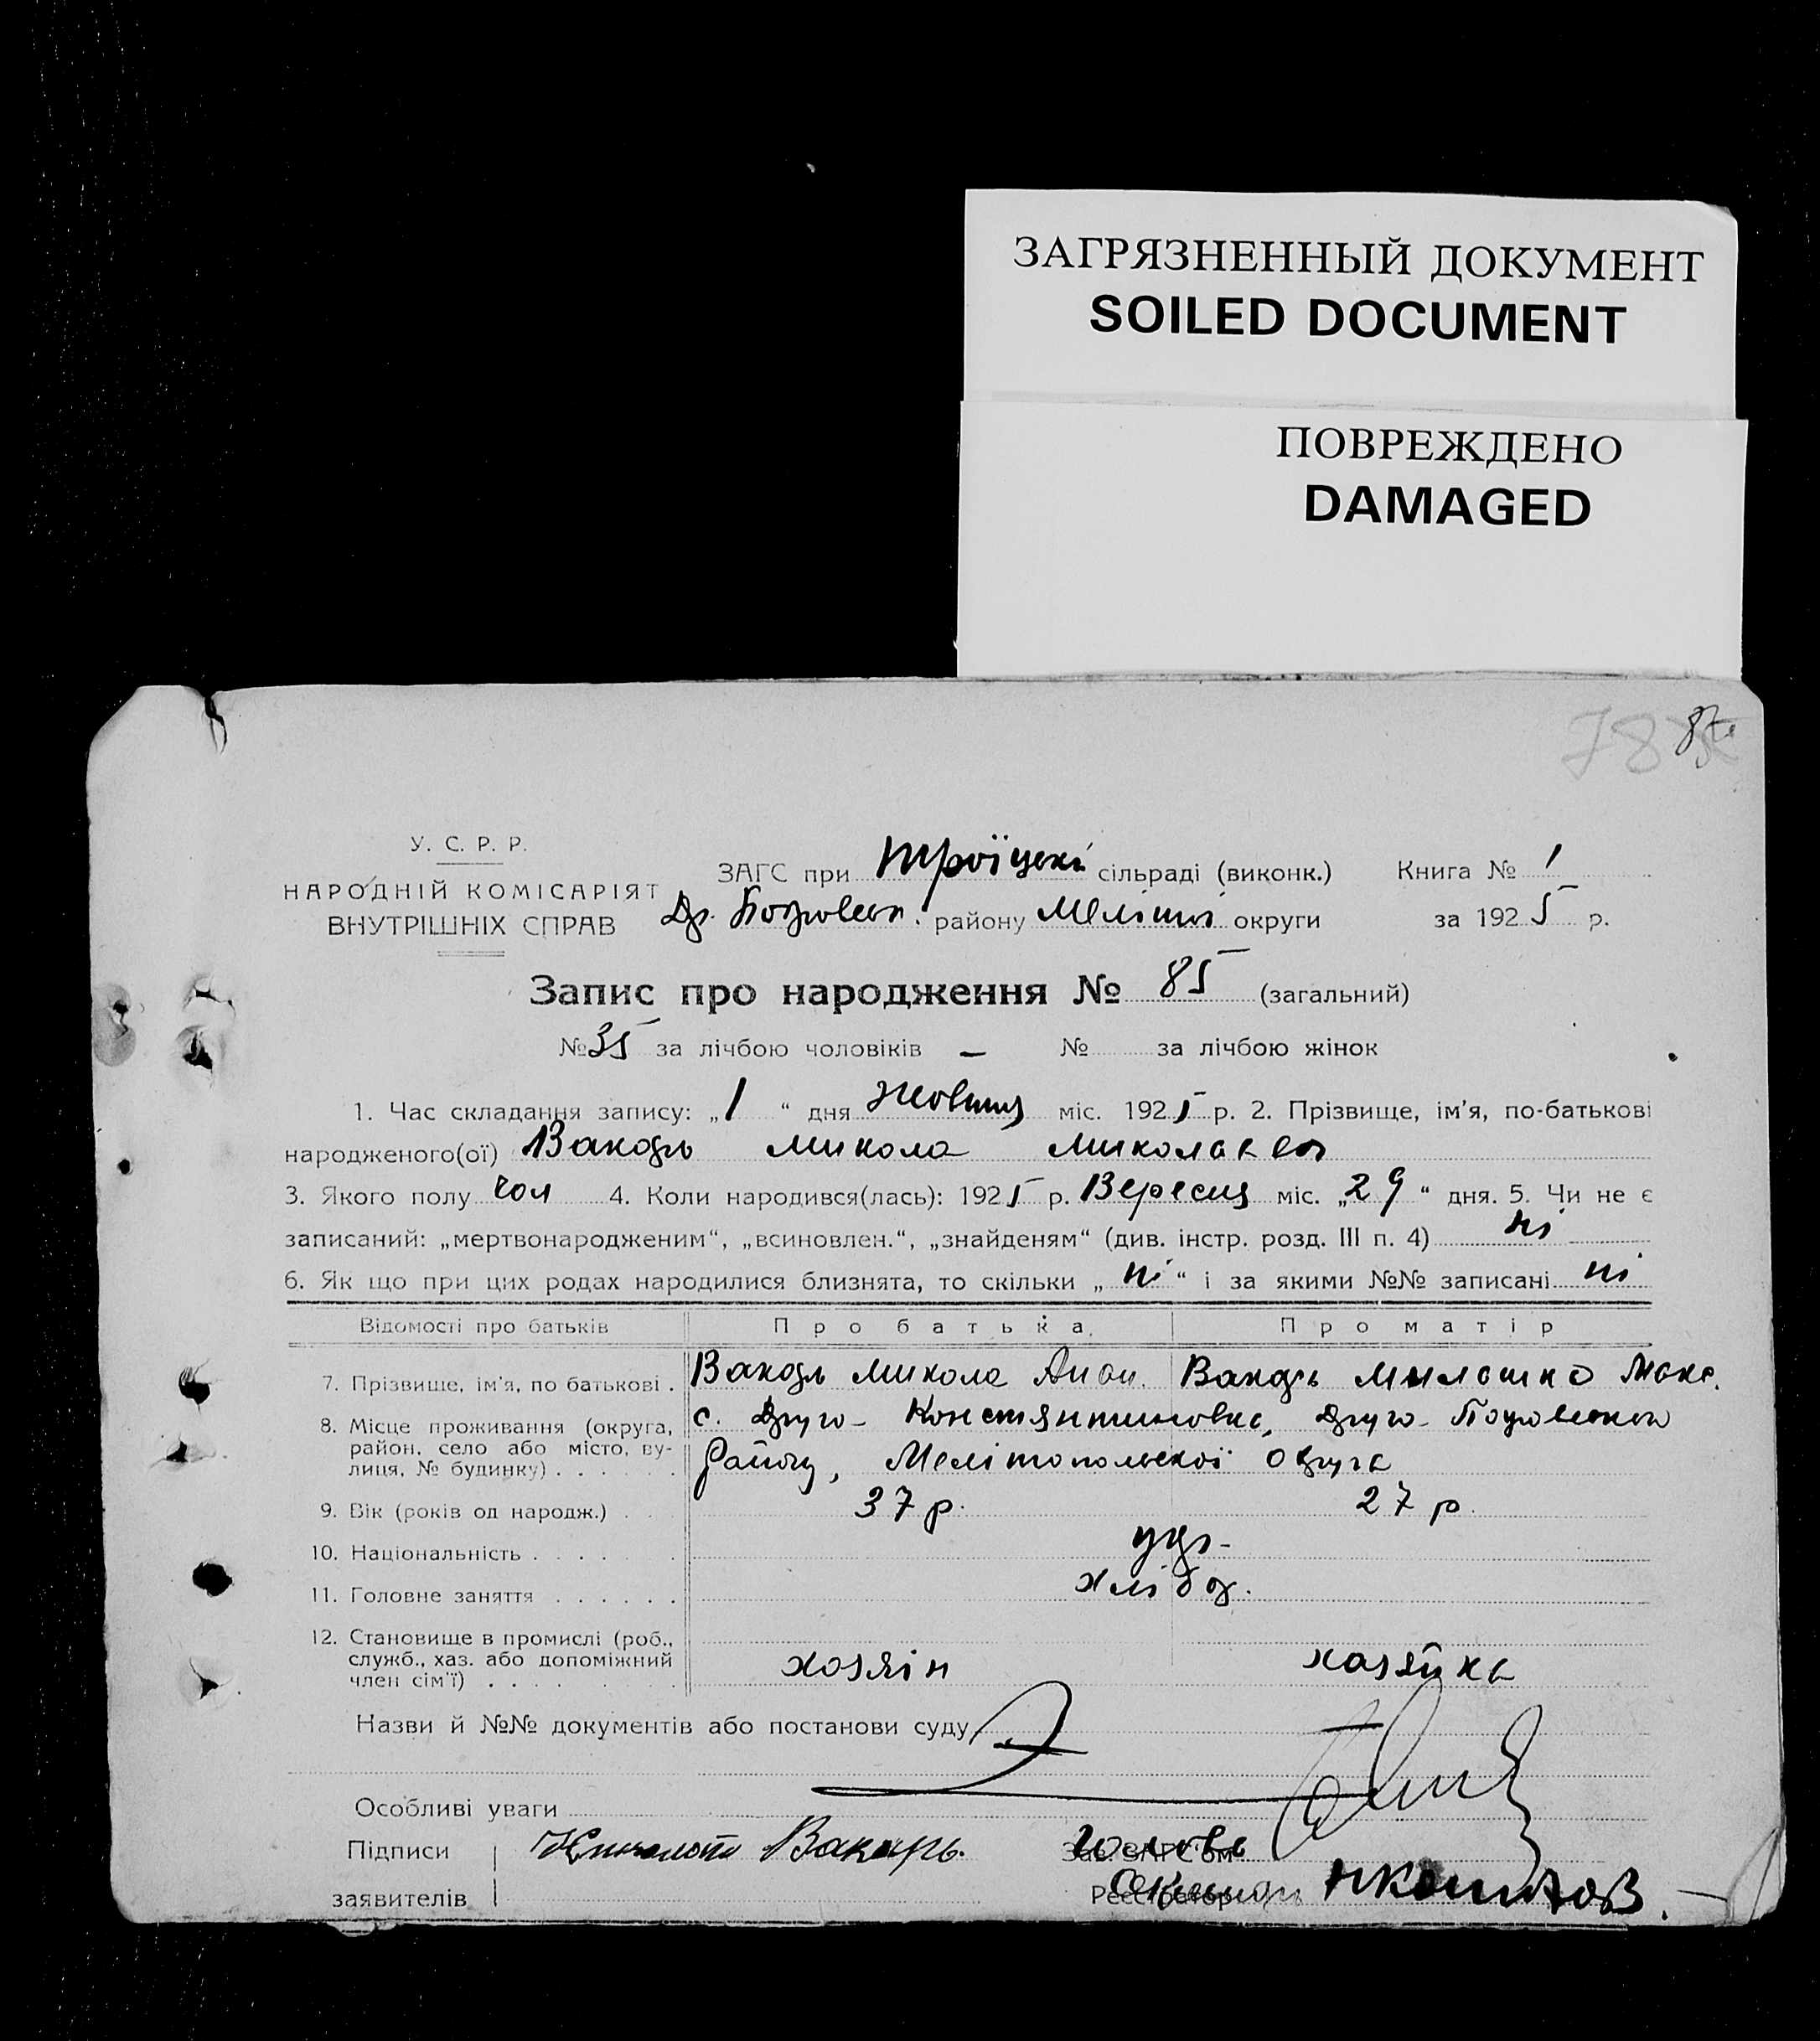 ЗАГРЯЗНЕННЫЙ ДОКУМЕНТ
SOILED DOCUMENT
ПОВРЕЖДЕНО
DAMAGED
78
У. С. Р. Р.
НАРОДНІЙ КОМІСАРІЯТ
ВНУТРІШНІХ СПРАВ
ЗАГС при Троїцькі сільраді (виконк.) Книга № 1
району Меліт округи за 1925 р.
Запис про народження № 85 (загальний)
№ 35 за лічбою чоловіків — № за лічбою жінок
1. Час складання запису: „1“ дня Жовтня міс. 1925 р. 2. Прізвище, ім'я, по-батькові
народженого(ої) Вакарь Микола Миколаев
3. Якого полу чол 4. Коли народився(лась): 1925 р. Вересня міс. „29“ дня. 5. Чи не є
записаний: „мертвонародженим“, „всиновлен.“, „знайденям“ (див. інстр. розд. III п. 4) ні
6. Як що при цих родах народилися близнята, то скільки „ні“ і за якими №№ записані ні
Відомості про батьків Про батька Про матір
7. Прізвище, ім'я, по батькові. Вакарь Микола Вакарь
8. Місце проживання (округа, район, село або місто, вулиця, № будинку) с. Друго-Констянтиновка, Друго-
Району, Мелітопольскої Округа
9. Вік (років од народж.) 37 р. 27 р.
10. Національність укр.
11. Головне заняття хлібор.
12. Становище в промислі (роб., служб., хаз. або допоміжний член сім'ї) хозяін хозяйка
Назви й №№ документів або постанови суду
Особливі уваги
Підписи Вакарь Голова Зав. ЗАГС'ом
заявителів Реєстратор